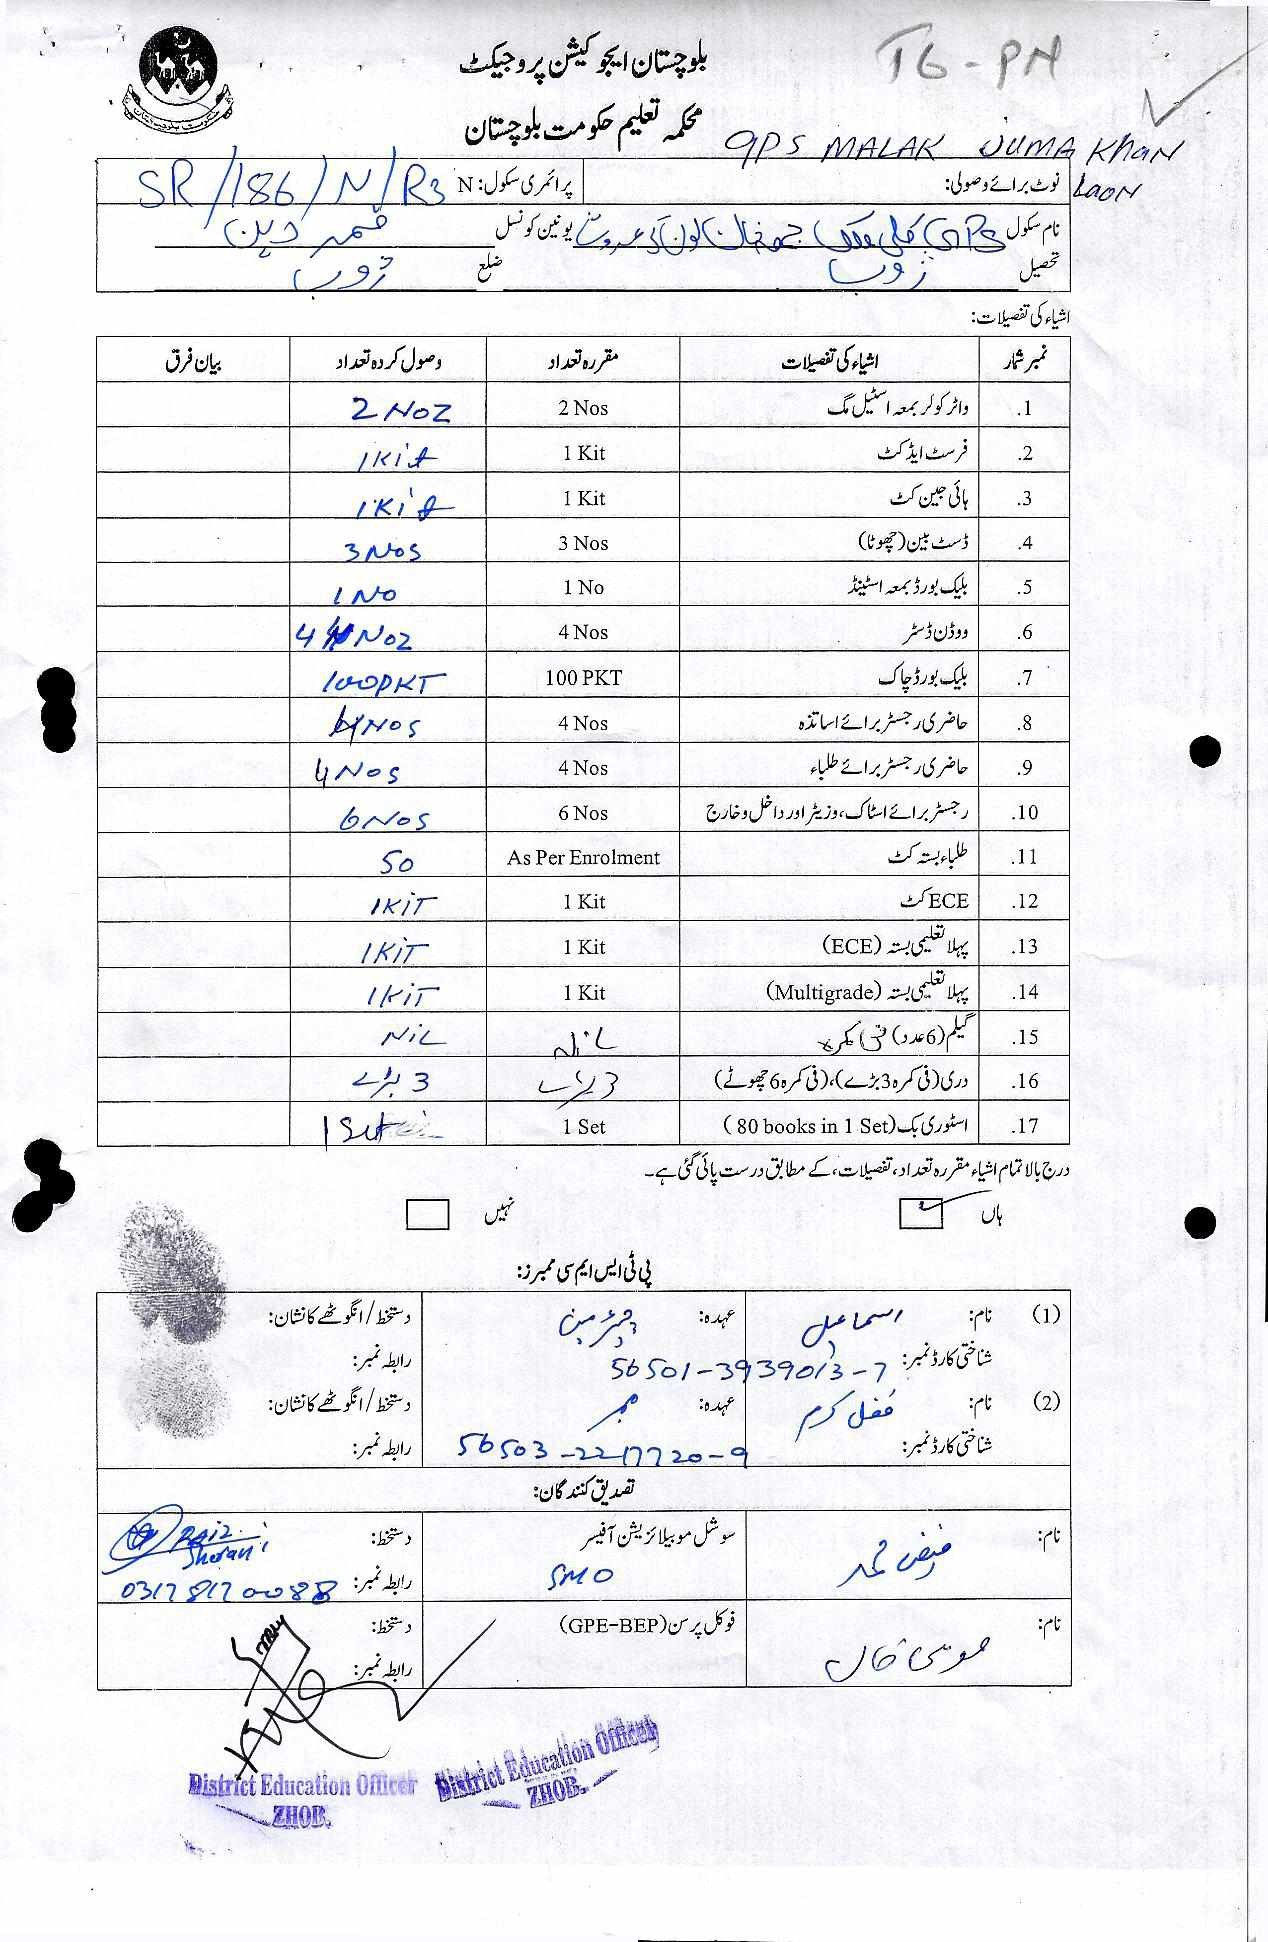 TG-PN
بلوچستان ایجوکیشن پروجیکٹ
محکمہ تعلیم حکومت بلوچستان
GPS MALAK JUMA KHAN
LAON
نوٹ برائے وصولی: پرائمری سکول: N SR/186/N/R3
نام سکول GPS کلی ملک جمعہ خان لون یونین کونسل قمر دین
تحصیل ژوب ضلع ژوب
اشیاء کی تفصیلات:
نمبر شمار اشیاء کی تفصیلات مقررہ تعداد وصول کردہ تعداد بیان فرق
1. واٹر کولر بمعہ اسٹیل مگ 2 Nos 2 Noz
2. فرسٹ ایڈ کٹ 1 Kit 1 Kit
3. ہائی جین کٹ 1 Kit 1 Kit
4. ڈسٹ بین (چھوٹا) 3 Nos 3 Nos
5. بلیک بورڈ بمعہ اسٹینڈ 1 No 1 No
6. ووڈن ڈسٹر 4 Nos 4 Noz
7. بلیک بورڈ چاک 100 PKT 100 PKT
8. حاضری رجسٹر برائے اساتذہ 4 Nos 4 Nos
9. حاضری رجسٹر برائے طلباء 4 Nos 4 Nos
10. رجسٹر برائے اسٹاک، وزیٹر اور داخل و خارج 6 Nos 6 Nos
11. طلباء بستہ کٹ As Per Enrolment 50
12. ECE کٹ 1 Kit 1 KiT
13. پہلا تعلیمی بستہ (ECE) 1 Kit 1 KiT
14. پہلا تعلیمی بستہ (Multigrade) 1 Kit 1 KiT
15. گیلم (6 عدد) فی کمرہ NiL NiL
16. دری (فی کمرہ 3 بڑے)، (فی کمرہ 6 چھوٹے) 3 بڑے 3 بڑے
17. اسٹوری بک (80 books in 1 Set) 1 Set 1 Set
درج بالا تمام اشیاء مقررہ تعداد، تفصیلات، کے مطابق درست پائی گئی ہے۔
ہاں نہیں
پی ٹی ایس ایم سی ممبرز:
(1) نام: اسماعیل عہدہ: چیئرمین دستخط / انگوٹھے کا نشان:
شناختی کارڈ نمبر: 56501-3939013-7 رابطہ نمبر:
(2) نام: فضل کرم عہدہ: ممبر دستخط / انگوٹھے کا نشان:
شناختی کارڈ نمبر: 56503-2217720-9 رابطہ نمبر:
تصدیق کنندگان:
نام: فیض محمد سوشل موبیلائزیشن آفیسر دستخط: RAIZ Sherani
SMO رابطہ نمبر: 03178170088
نام: موسیٰ خان فوکل پرسن (GPE-BEP) دستخط:
رابطہ نمبر:
District Education Officer
ZHOB.
District Education Officer
ZHOB.